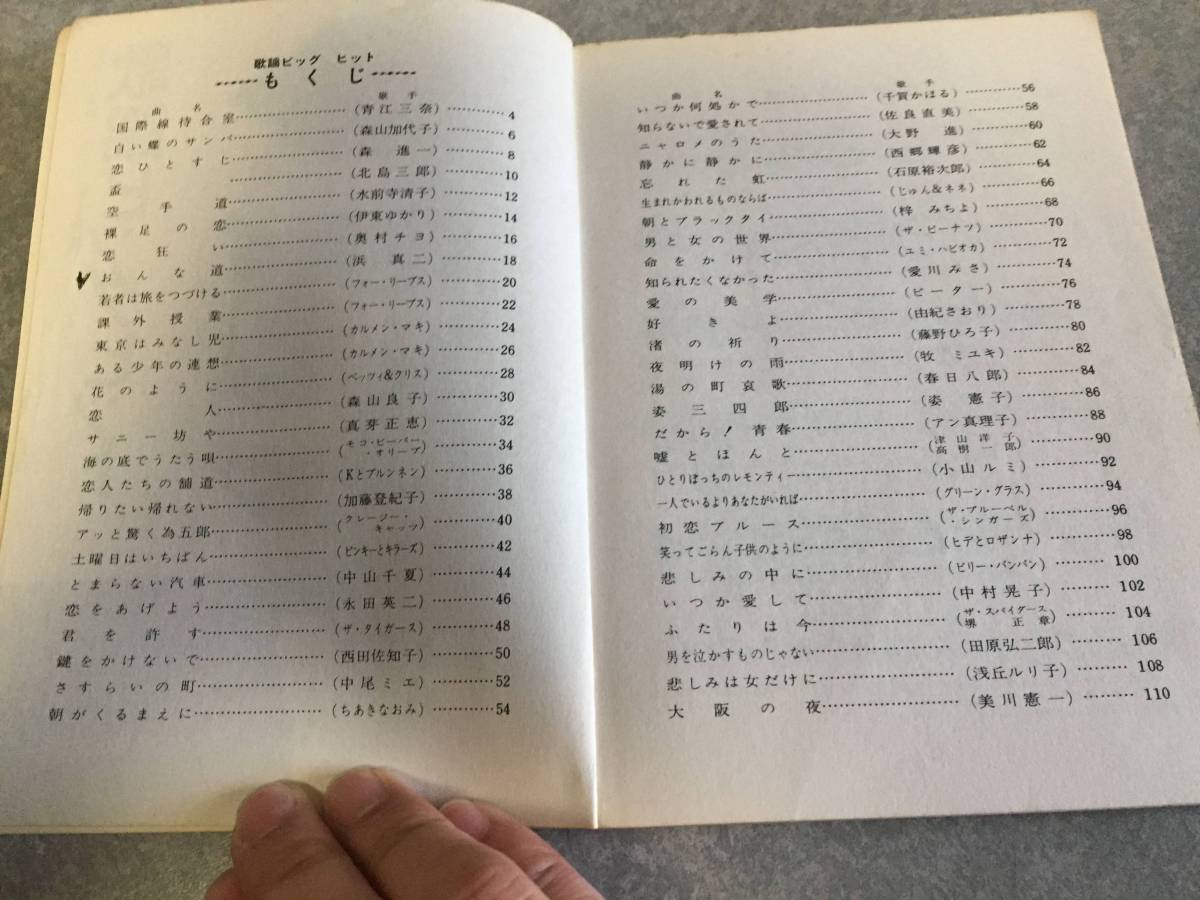 歌謡ビッグ ヒット
……もくじ……
曲名 歌手
国際線待合室……(青江三奈)……4
白い蝶のサンバ……(森山加代子)……6
恋ひとすじ……(森進一)……8
盃……(北島三郎)……10
空手道……(水前寺清子)……12
裸足の恋……(伊東ゆかり)……14
恋狂い……(奥村チヨ)……16
おんな道……(浜真二)……18
若者は旅をつづける……(フォー・リーブス)……20
課外授業……(フォー・リーブス)……22
東京はみなし児……(カルメン・マキ)……24
ある少年の連想……(カルメン・マキ)……26
花のように……(ベッツィ&クリス)……28
恋人……(森山良子)……30
サニー坊や……(真芽正恵)……32
海の底でうたう唄……(モコ・ビーバー・オリーブ)……34
恋人たちの舗道……(Kとブルンネン)……36
帰りたい帰れない……(加藤登紀子)……38
アッと驚く為五郎……(クレージー・キャッツ)……40
土曜日はいちばん……(ピンキーとキラーズ)……42
とまらない汽車……(中山千夏)……44
恋をあげよう……(永田英二)……46
君を許す……(ザ・タイガース)……48
鍵をかけないで……(西田佐知子)……50
さすらいの町……(中尾ミエ)……52
朝がくるまえに……(ちあきなおみ)……54
曲名 歌手
いつか何処かで……(千賀かほる)……56
知らないで愛されて……(佐良直美)……58
ニャロメのうた……(大野進)……60
静かに静かに……(西郷輝彦)……62
忘れた虹……(石原裕次郎)……64
生まれかわれるものならば……(じゅん&ネネ)……66
朝とブラックタイ……(梓みちよ)……68
男と女の世界……(ザ・ピーナツ)……70
命をかけて……(ユミ・ハビオカ)……72
知られたくなかった……(愛川みさ)……74
愛の美学……(ピーター)……76
好きよ……(由紀さおり)……78
渚の祈り……(藤野ひろ子)……80
夜明けの雨……(牧ミユキ)……82
湯の町哀歌……(春日八郎)……84
姿三四郎……(姿憲子)……86
だから!青春……(アン真理子)……88
嘘とほんと……(津山洋子 高樹一郎)……90
ひとりぼっちのレモンティー……(小山ルミ)……92
一人でいるよりあなたがいれば……(グリーン・グラス)……94
初恋ブルース……(ザ・ブルーベル・シンガーズ)……96
笑ってごらん子供のように……(ヒデとロザンナ)……98
悲しみの中に……(ビリー・バンバン)……100
いつか愛して……(中村晃子)……102
ふたりは今……(ザ・スパイダース 堺正章)……104
男を泣かすものじゃない……(田原弘二郎)……106
悲しみは女だけに……(浅丘ルリ子)……108
大阪の夜……(美川憲一)……110